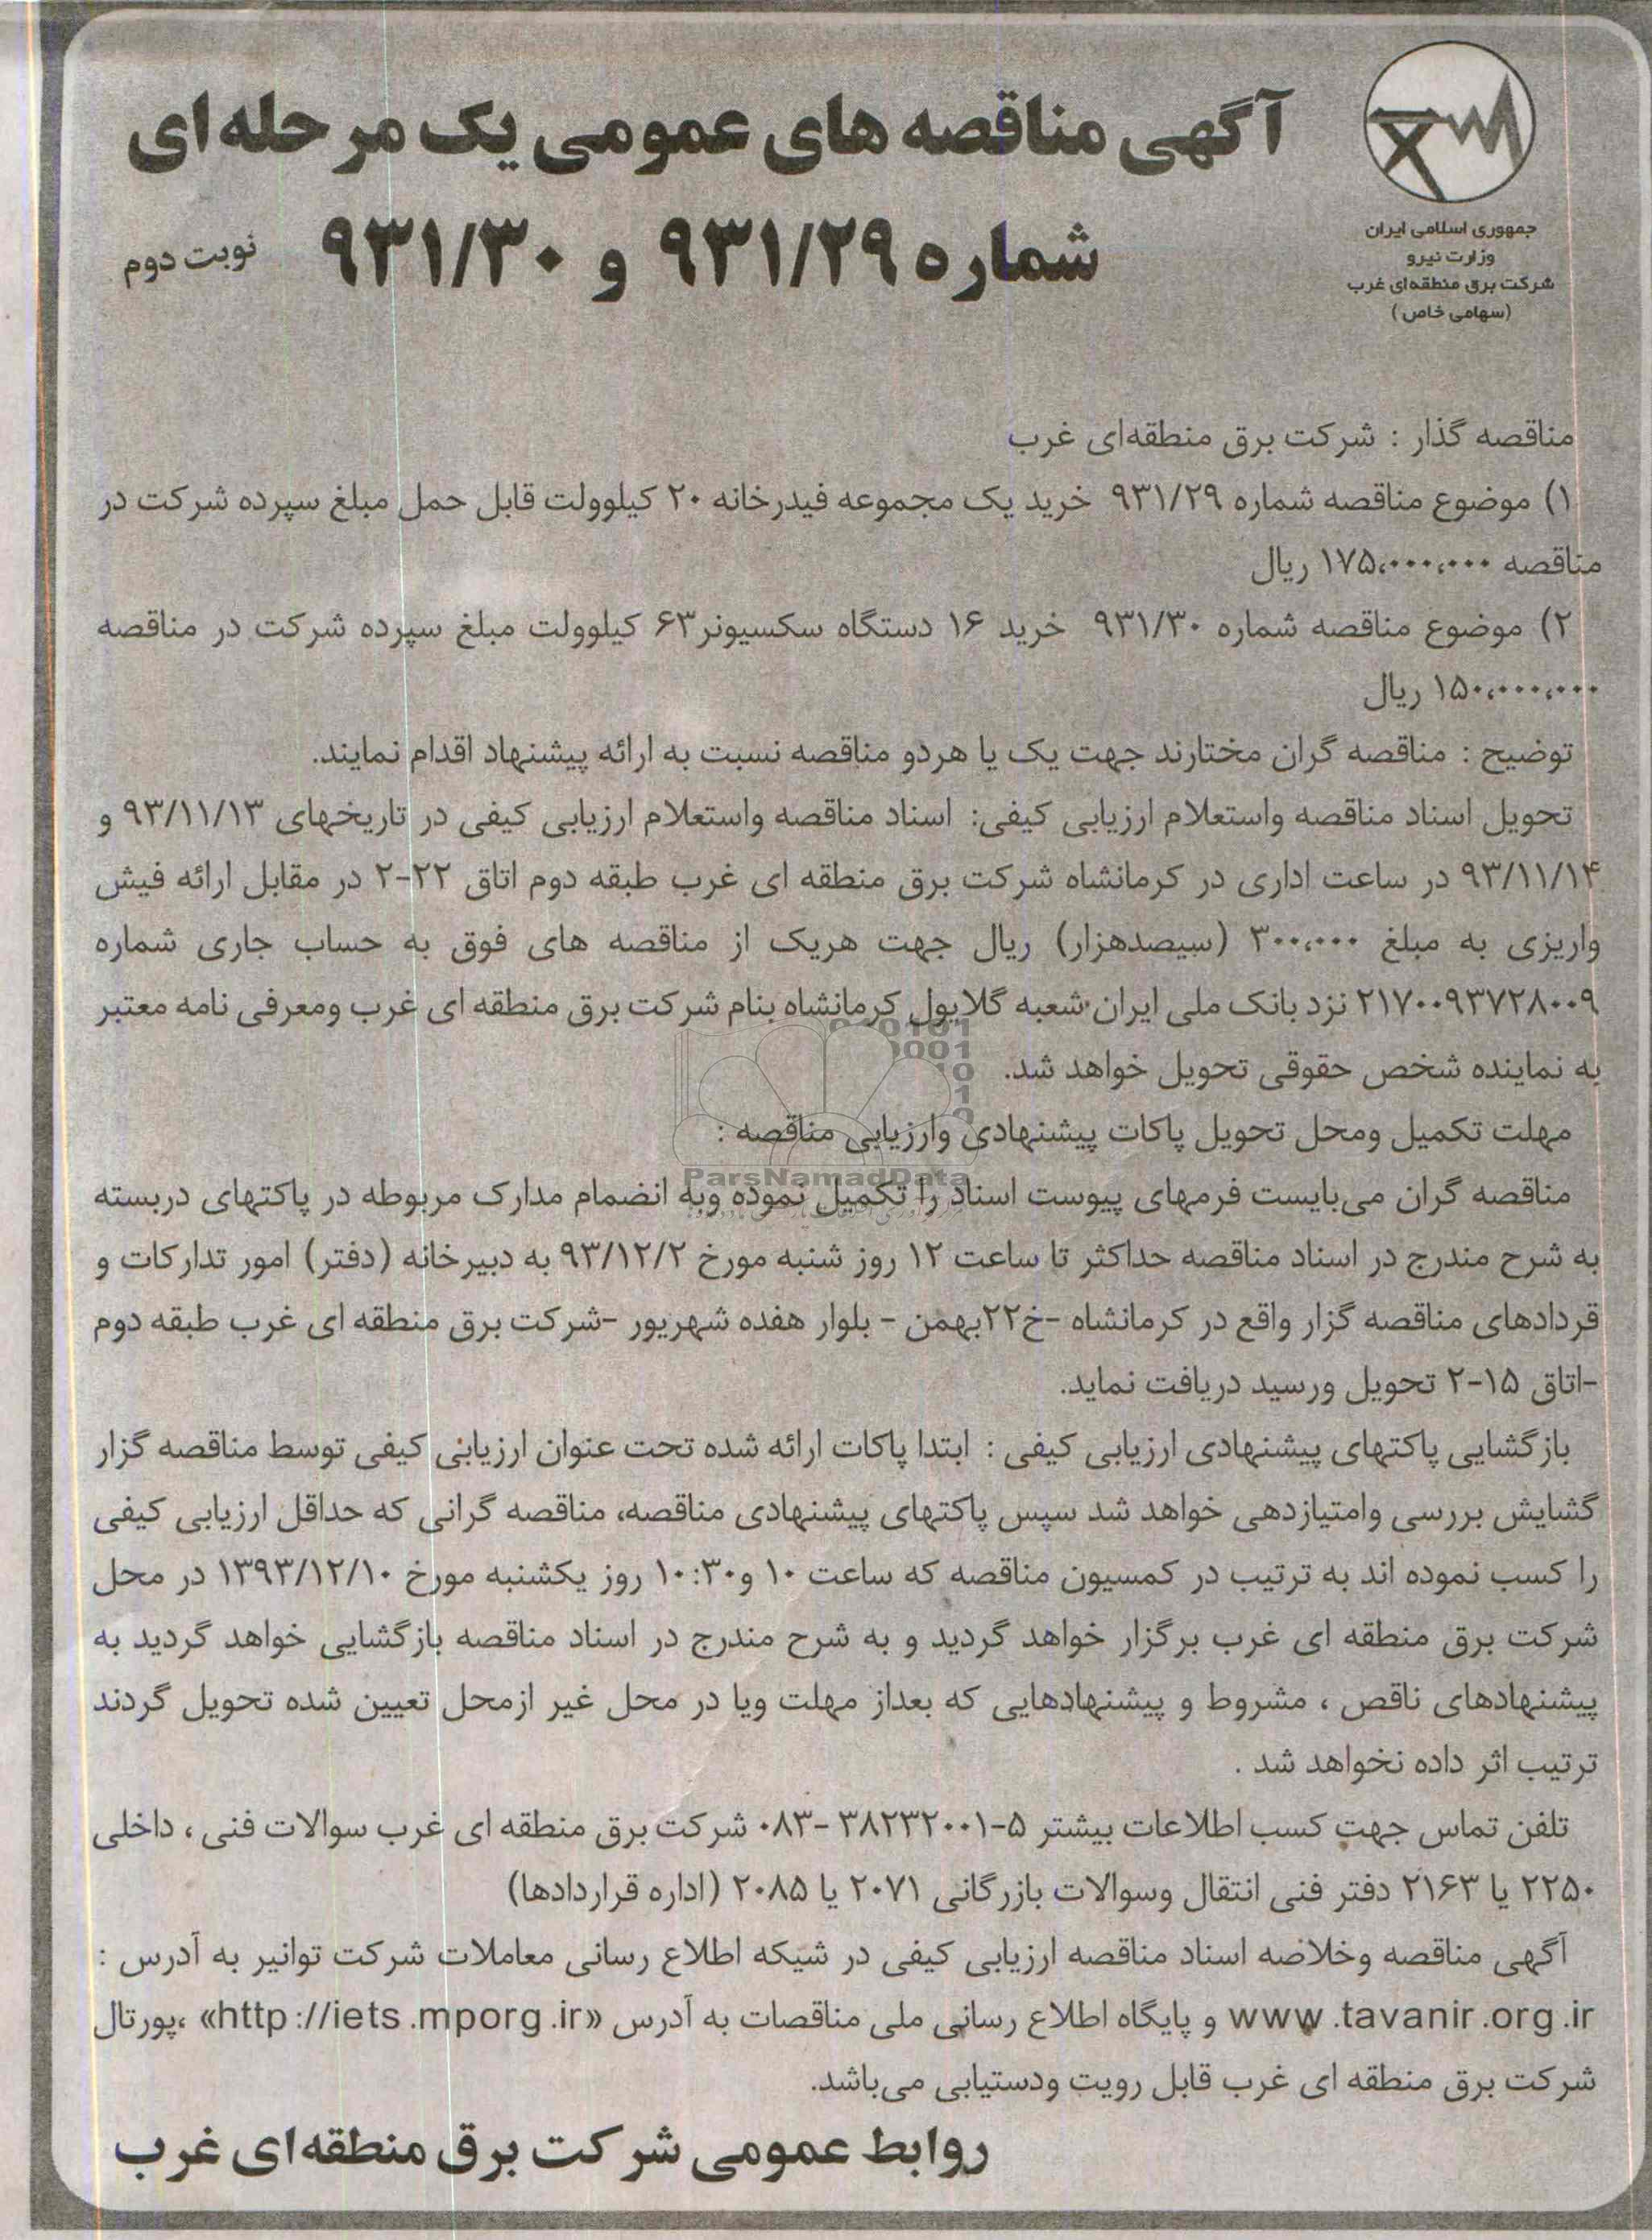 آگهی مناقصه های عمومی یک مرحله ای
شماره ۹۳۱/۲۹ و ۹۳۱/۳۰
نوبت دوم
جمهوری اسلامی ایران
وزارت نیرو
شرکت برق منطقه‌ای غرب
(سهامی خاص)
مناقصه گذار : شرکت برق منطقه‌ای غرب
۱) موضوع مناقصه شماره ۹۳۱/۲۹ خرید یک مجموعه فیدرخانه ۲۰ کیلوولت قابل حمل مبلغ سپرده شرکت در
مناقصه ۱۷۵،۰۰۰،۰۰۰ ریال
۲) موضوع مناقصه شماره ۹۳۱/۳۰ خرید ۱۶ دستگاه سکسیونر۶۳ کیلوولت مبلغ سپرده شرکت در مناقصه
۱۵۰،۰۰۰،۰۰۰ ریال
توضیح : مناقصه گران مختارند جهت یک یا هردو مناقصه نسبت به ارائه پیشنهاد اقدام نمایند.
تحویل اسناد مناقصه واستعلام ارزیابی کیفی: اسناد مناقصه واستعلام ارزیابی کیفی در تاریخهای ۹۳/۱۱/۱۳ و
۹۳/۱۱/۱۴ در ساعت اداری در کرمانشاه شرکت برق منطقه ای غرب طبقه دوم اتاق ۲۲-۲ در مقابل ارائه فیش
واریزی به مبلغ ۳۰۰،۰۰۰ (سیصدهزار) ریال جهت هریک از مناقصه های فوق به حساب جاری شماره
۲۱۷۰۰۹۳۷۲۸۰۰۹ نزد بانک ملی ایران شعبه گلایول کرمانشاه بنام شرکت برق منطقه ای غرب ومعرفی نامه معتبر
به نماینده شخص حقوقی تحویل خواهد شد.
مهلت تکمیل ومحل تحویل پاکات پیشنهادی وارزیابی مناقصه :
ParsNamadData
مناقصه گران می‌بایست فرمهای پیوست اسناد را تکمیل نموده وبه انضمام مدارک مربوطه در پاکتهای دربسته
به شرح مندرج در اسناد مناقصه حداکثر تا ساعت ۱۲ روز شنبه مورخ ۹۳/۱۲/۲ به دبیرخانه (دفتر) امور تدارکات و
قردادهای مناقصه گزار واقع در کرمانشاه -خ۲۲بهمن - بلوار هفده شهریور -شرکت برق منطقه ای غرب طبقه دوم
-اتاق ۱۵-۲ تحویل ورسید دریافت نماید.
بازگشایی پاکتهای پیشنهادی ارزیابی کیفی : ابتدا پاکات ارائه شده تحت عنوان ارزیابی کیفی توسط مناقصه گزار
گشایش بررسی وامتیازدهی خواهد شد سپس پاکتهای پیشنهادی مناقصه، مناقصه گرانی که حداقل ارزیابی کیفی
را کسب نموده اند به ترتیب در کمسیون مناقصه که ساعت ۱۰ و۱۰:۳۰ روز یکشنبه مورخ ۱۳۹۳/۱۲/۱۰ در محل
شرکت برق منطقه ای غرب برگزار خواهد گردید و به شرح مندرج در اسناد مناقصه بازگشایی خواهد گردید به
پیشنهادهای ناقص ، مشروط و پیشنهادهایی که بعداز مهلت ویا در محل غیر ازمحل تعیین شده تحویل گردند
ترتیب اثر داده نخواهد شد .
تلفن تماس جهت کسب اطلاعات بیشتر ۵-۳۸۲۳۲۰۰۱ -۰۸۳ شرکت برق منطقه ای غرب سوالات فنی ، داخلی
۲۲۵۰ یا ۲۱۶۳ دفتر فنی انتقال وسوالات بازرگانی ۲۰۷۱ یا ۲۰۸۵ (اداره قراردادها)
آگهی مناقصه وخلاصه اسناد مناقصه ارزیابی کیفی در شبکه اطلاع رسانی معاملات شرکت توانیر به آدرس :
www.tavanir.org.ir و پایگاه اطلاع رسانی ملی مناقصات به آدرس «http://iets.mporg.ir» ،پورتال
شرکت برق منطقه ای غرب قابل رویت ودستیابی می‌باشد.
روابط عمومی شرکت برق منطقه‌ای غرب